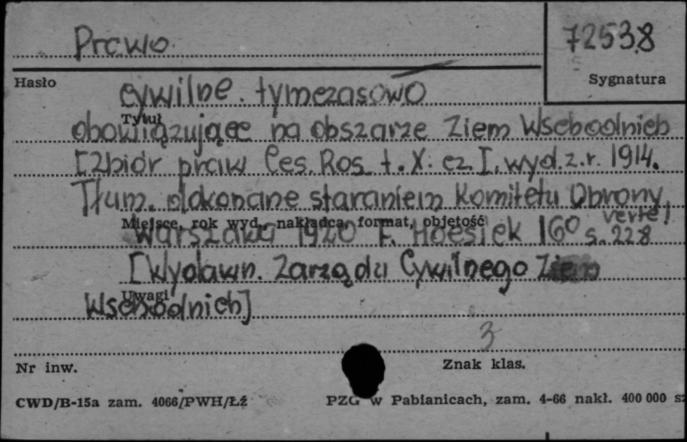 Prawo
72538
Hasło
Sygnatura
cywilne. tymczasowo
Tytuł
obowiązujące na obszarze Ziem Wschodnich
[Zbiór praw Ces. Ros. t. X. cz I. wyd. z. r. 1914.
Tłum. dokonane staraniem Komitetu Obrony
verte!
Miejsce, rok wyd., nakładca, format, objętość
Warszawa 1920 F. Hoesick 16° s. 228
[Wydawn. Zarządu Cywilnego Ziem
Uwagi
Wschodnich]
3
Nr inw.
Znak klas.
CWD/B-15a zam. 4066/PWH/Łź
PZG w Pabianicach, zam. 4-66 nakł. 400 000 sz